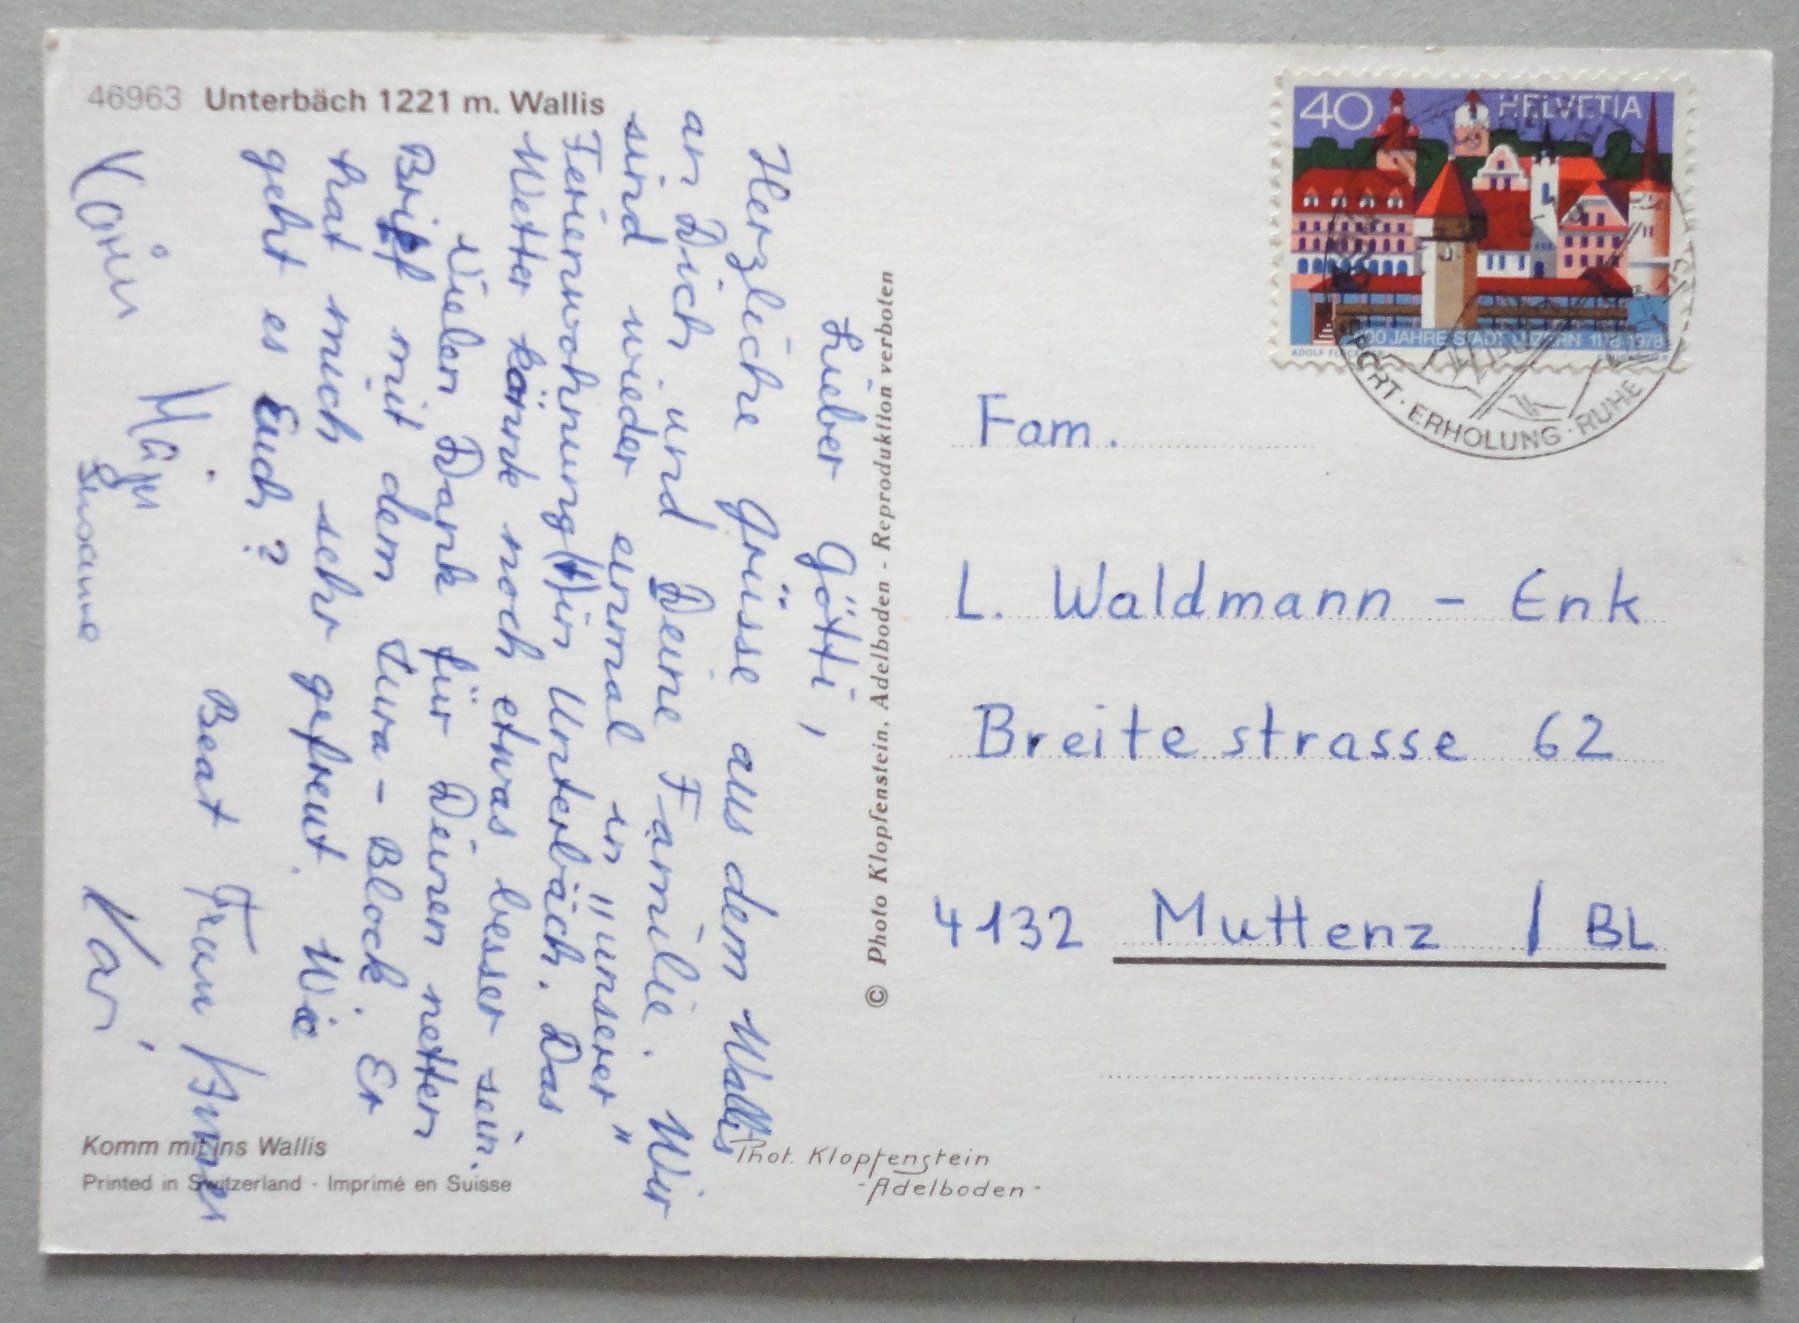 46963 Unterbäch 1221 m. Wallis
Lieber Götti,
Herzliche Grüsse aus dem Wallis
an Dich und Deine Familie. Wir
sind wieder einmal in "unserer"
Ferienwohnung in Unterbäch. Das
Wetter könnte noch etwas besser sein.
Vielen Dank für Deinen netten
Brief mit dem Jura-Block. Er
hat mich sehr gefreut. Wie
geht es Euch?
Beat
Karin
Susanne
Komm mit ins Wallis
Printed in Switzerland · Imprimé en Suisse
© Photo Klopfenstein, Adelboden - Reproduktion verboten
Phot. Klopfenstein
- Adelboden -
40 HELVETIA
800 JAHRE STADT LUZERN 1178-1978
SPORT · ERHOLUNG · RUHE
Fam.
L. Waldmann - Enk
Breitestrasse 62
4132 Muttenz / BL